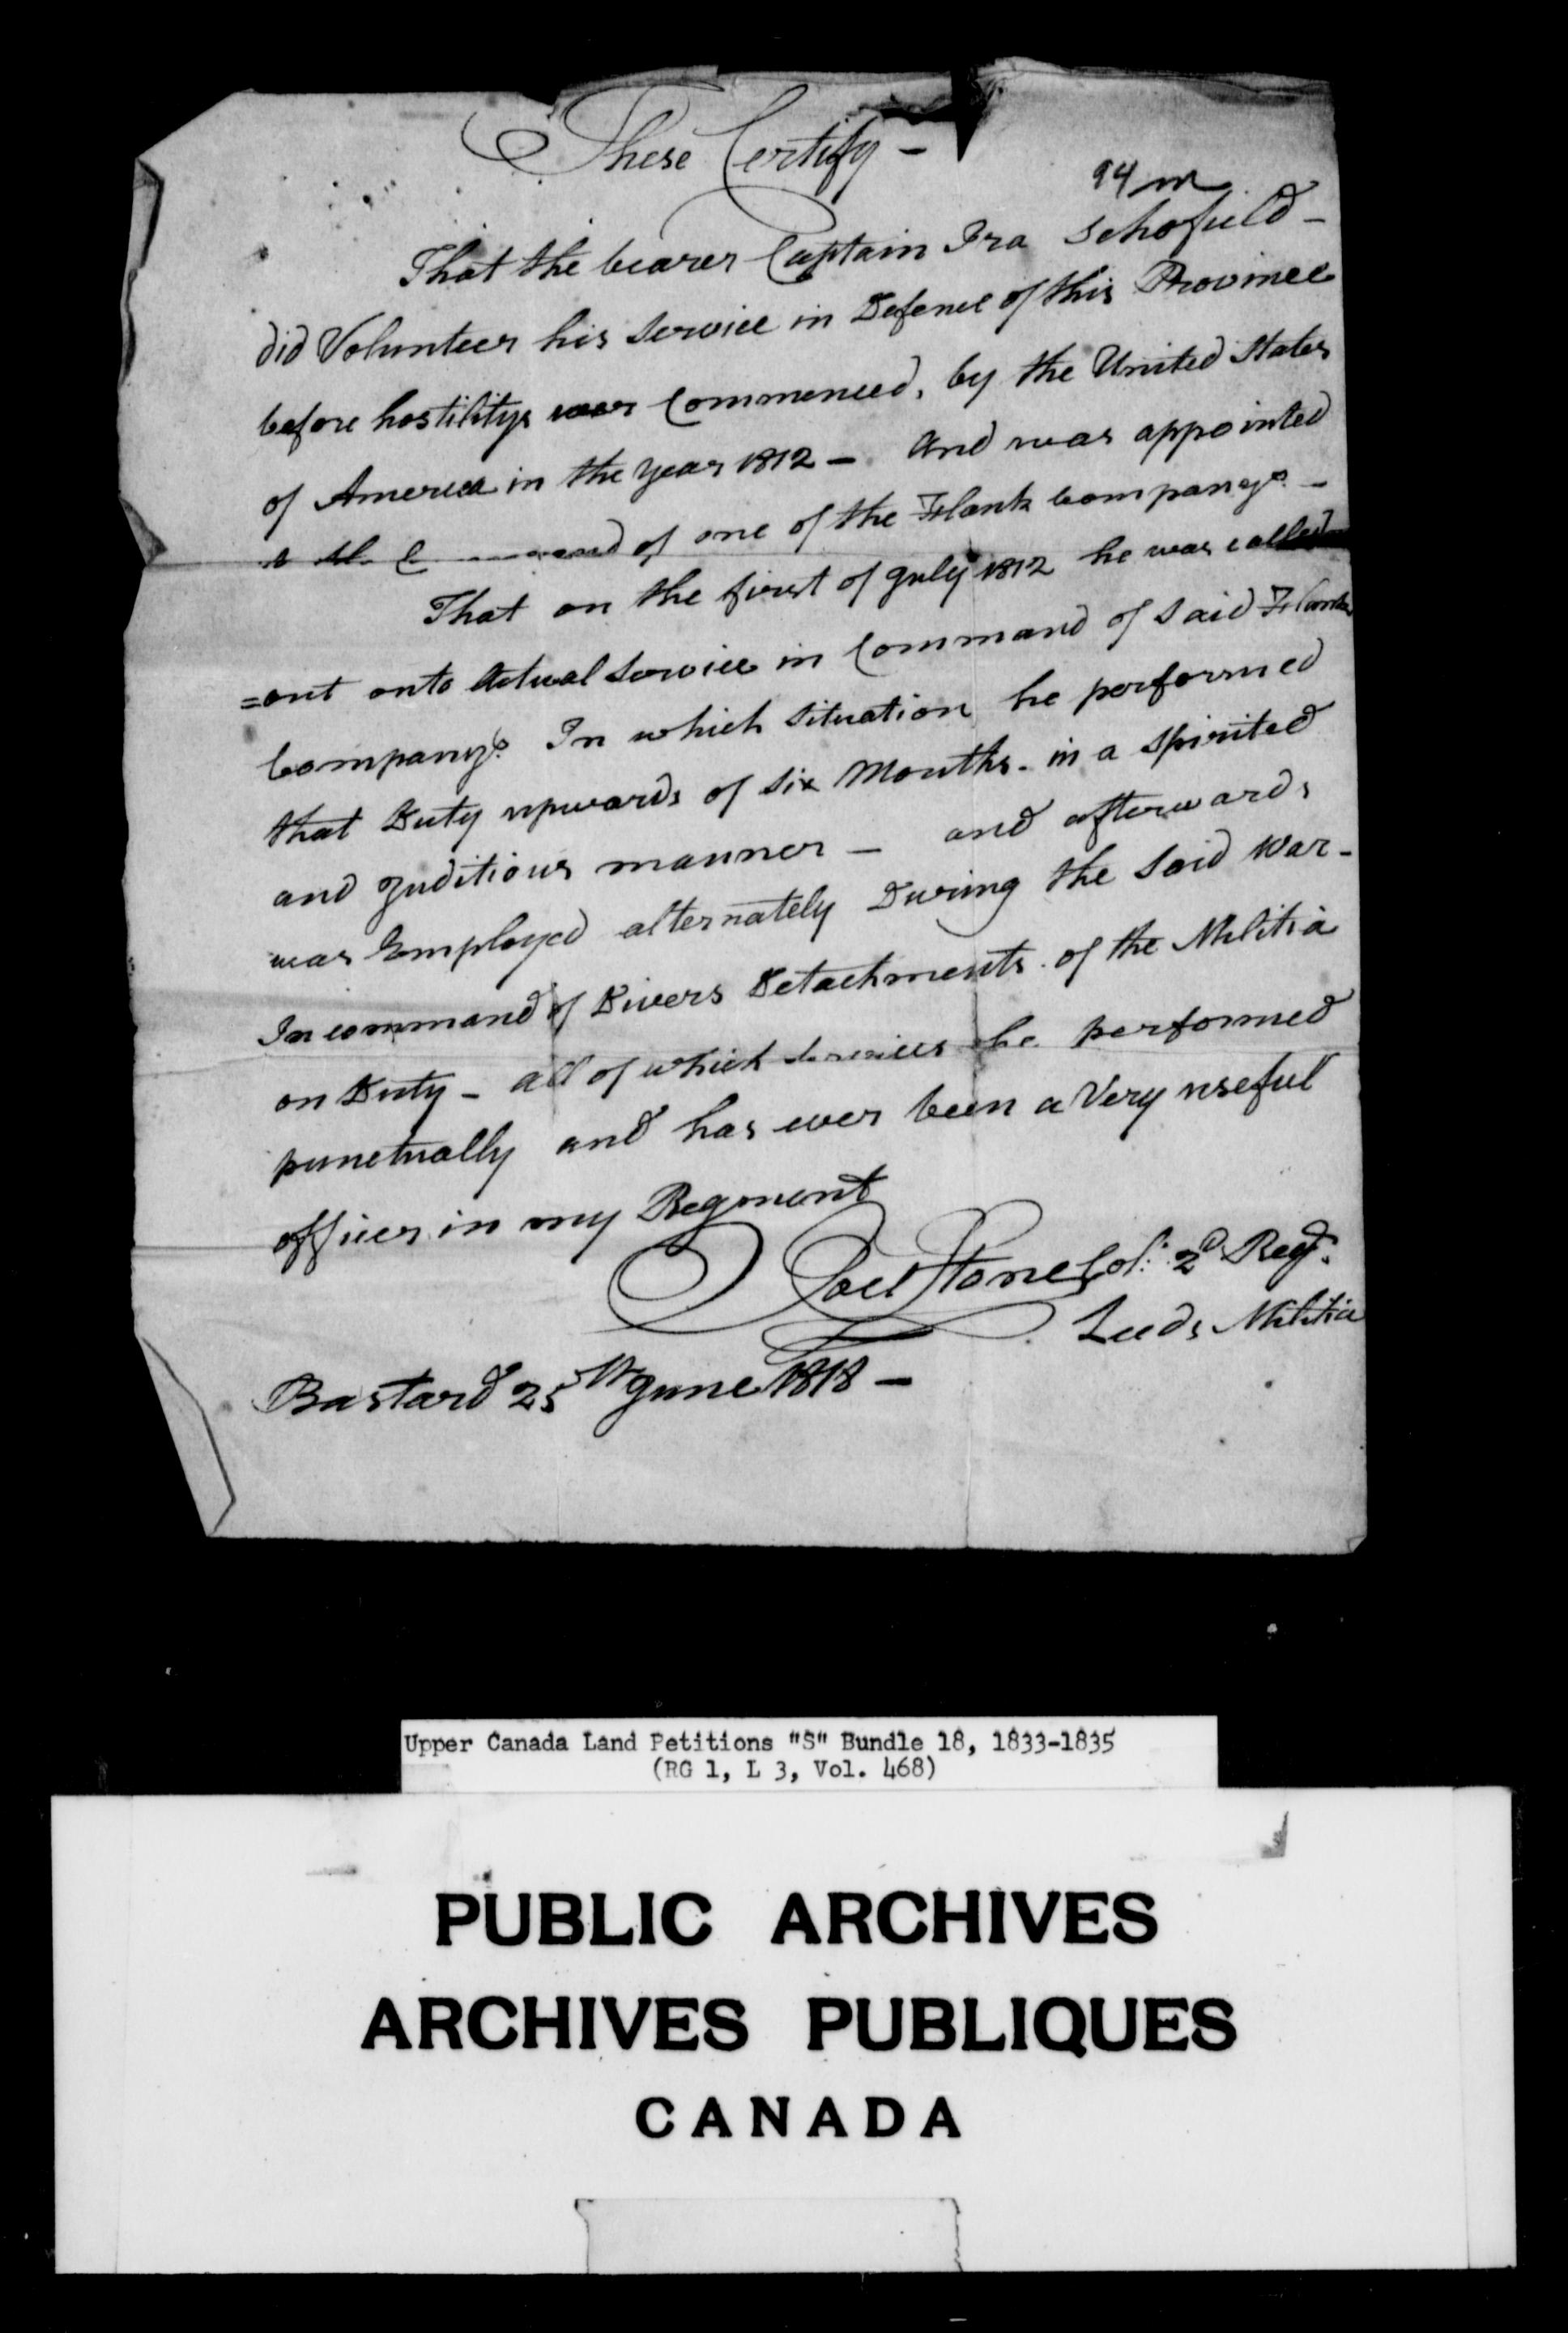 These Certify –
94 m
That the bearer Captain Ira Schofield –
did Volunteer his Service in Defence of this Province
before hostilitys was Commenced, by the United States
of America in the year 1812 – and was appointed
to the Command of one of the Flank Companys –
That on the first of July 1812 he was called
=out onto Actual Service in Command of said Flank
Company. In which situation he performed
that Duty upwards of six Months – in a Spirited
and Juditious manner – and afterwards
was Employed alternately During the Said War –
In command of Divers Detachments of the Militia
on Duty – all of which Services he performed
punctually and has ever been a Very useful
officer in my Regment
Joel Stone Col: 2d Regt.
Leeds Militia
Bastard 25th June 1818 –
Upper Canada Land Petitions "S" Bundle 18, 1833-1835
(RG 1, L 3, Vol. 468)
PUBLIC ARCHIVES
ARCHIVES PUBLIQUES
CANADA